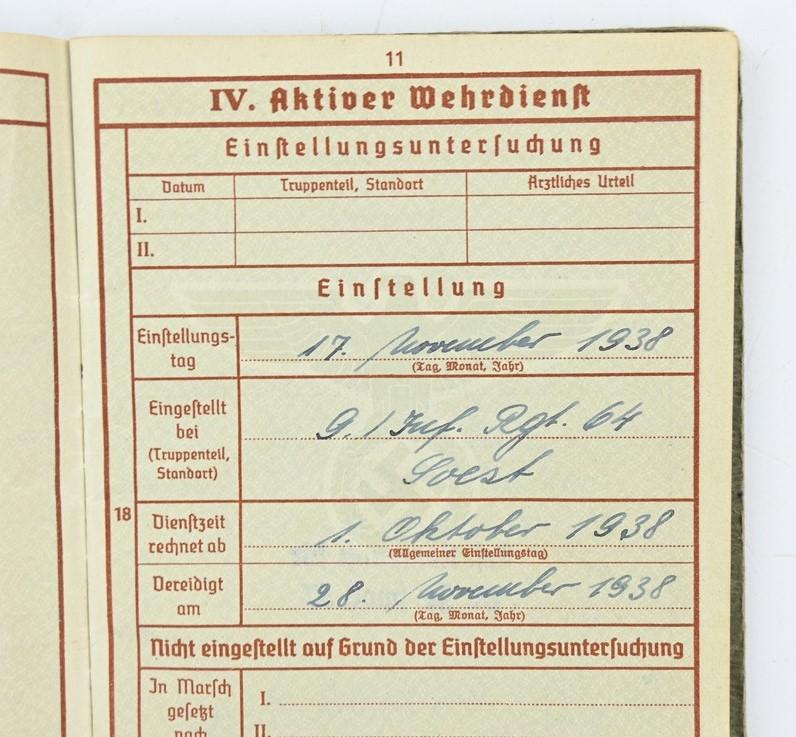 11
IV. Aktiver Wehrdienst
Einstellungsuntersuchung
Datum Truppenteil, Standort Ärztliches Urteil
I.
II.
Einstellung
Einstellungs-
tag
17. November 1938
(Tag, Monat, Jahr)
Eingestellt
bei
(Truppenteil,
Standort)
9./Inf. Rgt. 64
Soest
18
Dienstzeit
rechnet ab
1. Oktober 1938
(Allgemeiner Einstellungstag)
Vereidigt
am
28. November 1938
(Tag, Monat, Jahr)
Nicht eingestellt auf Grund der Einstellungsuntersuchung
In Marsch
gesetzt
nach
I.
II.